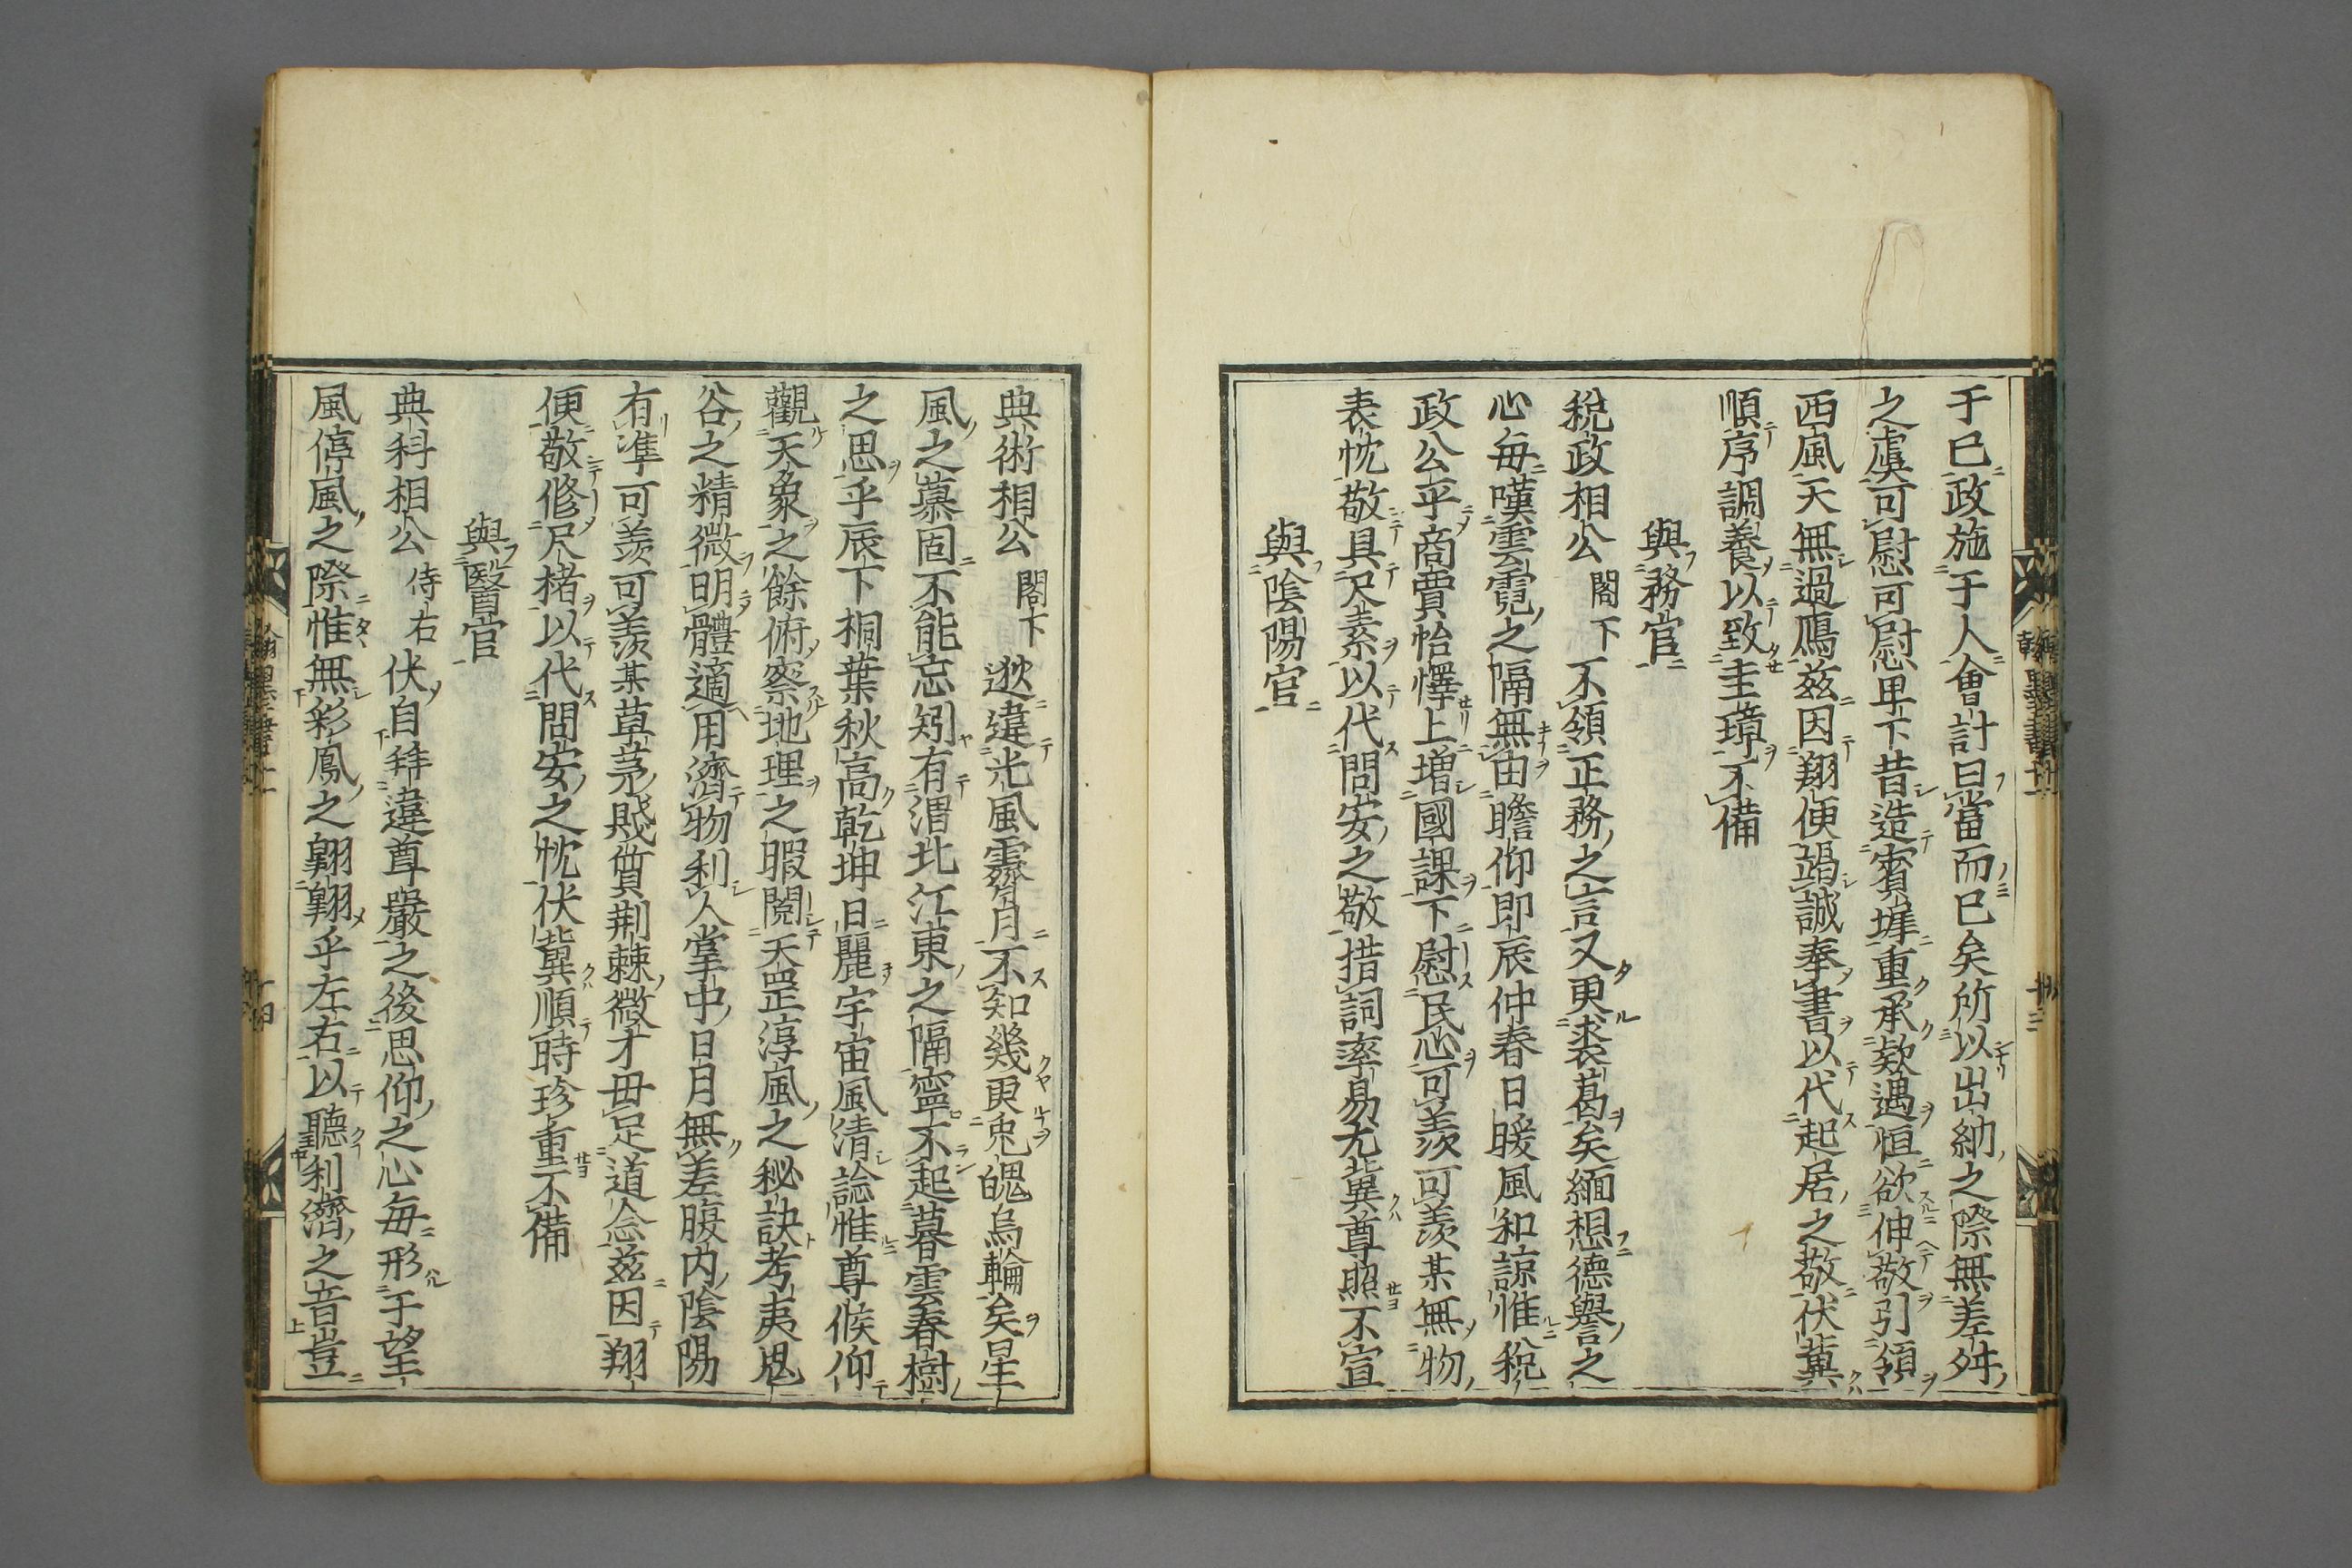 于巳政施于人會計曰當而已矣所以出納之際無差舛
之虞可慰可慰卑下昔造賓墀重承欵遇恒欲伸敬引領
西風天無過鴈茲因翔便竭誠奉書以代起居之敬伏冀
順序調養以致圭璋不備
與務官
稅政相公閣下不領正務之言又更裘葛矣緬想德譽之
心每嘆雲霓之隔無由瞻仰即辰仲春日暖風和諒惟稅
政公乎商賈怡懌上增國課下慰民心可羨可羨某無物
表忱敬具尺素以代問安之敬措詞率易尤冀尊照不宣
與陰陽官
典術相公閣下逖違光風霽月不知幾更兎魄烏輪矣星
風之慕固不能忘矧有渭北江東之隔寧不起暮雲春樹
之思乎辰下桐葉秋高乾坤日麗宇宙風清諗惟尊候仰
觀天象之餘俯察地理之暇閱天罡淳風之秘訣考夷鬼
谷之精微明體適用濟物利人掌中日月無差腹内陰陽
有準可羨可羨某草茅賤質荆棘微才毋足道念茲因翔
便敬修尺楮以代問安之忱伏冀順時珍重不備
與醫官
典科相公侍右伏自拜違尊嚴之後思仰之心每形于望
風停風之際惟無彩鳳之翺翔乎左右以聽利濟之音豈